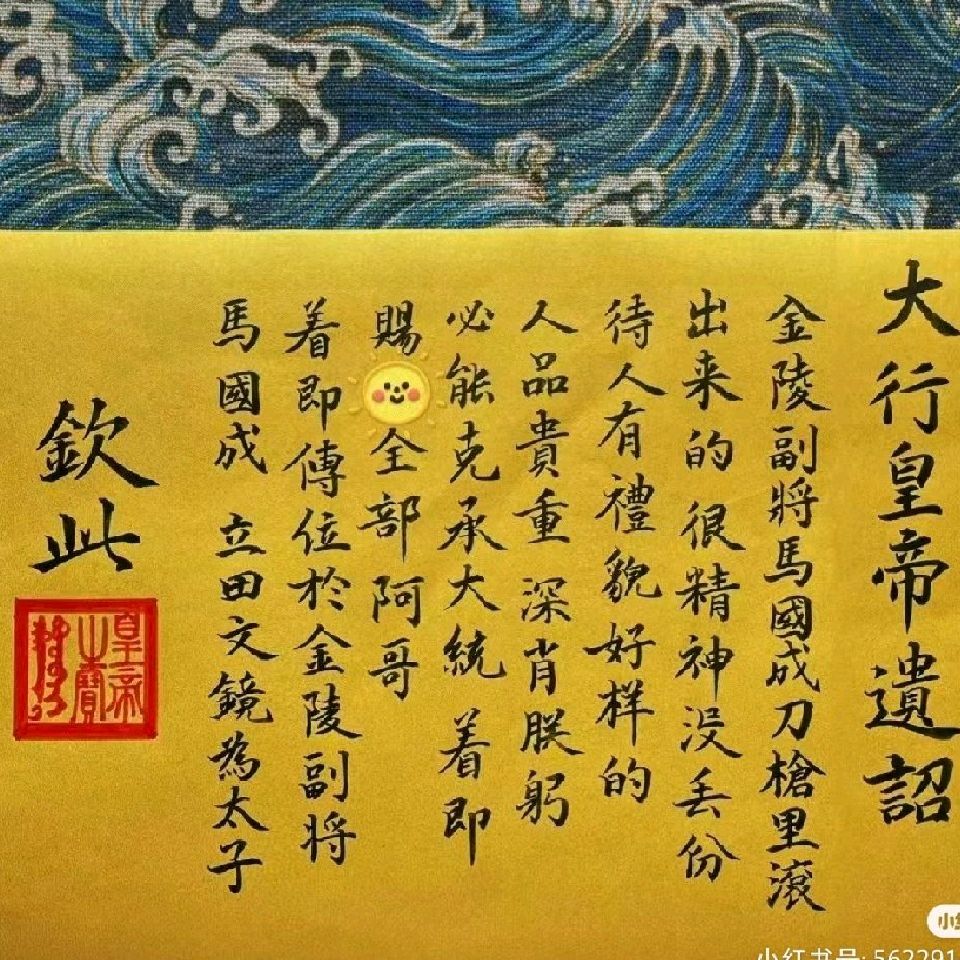 大行皇帝遺詔
金陵副將馬國成刀槍里滾
出来的 很精神 没丢份
待人有禮貌 好样的
人品貴重 深肖朕躬
必能克承大統 着即
賜 全部阿哥
着即傳位於金陵副將
馬國成 立田文鏡為太子
欽此
皇帝之寶
小红书号: 562291